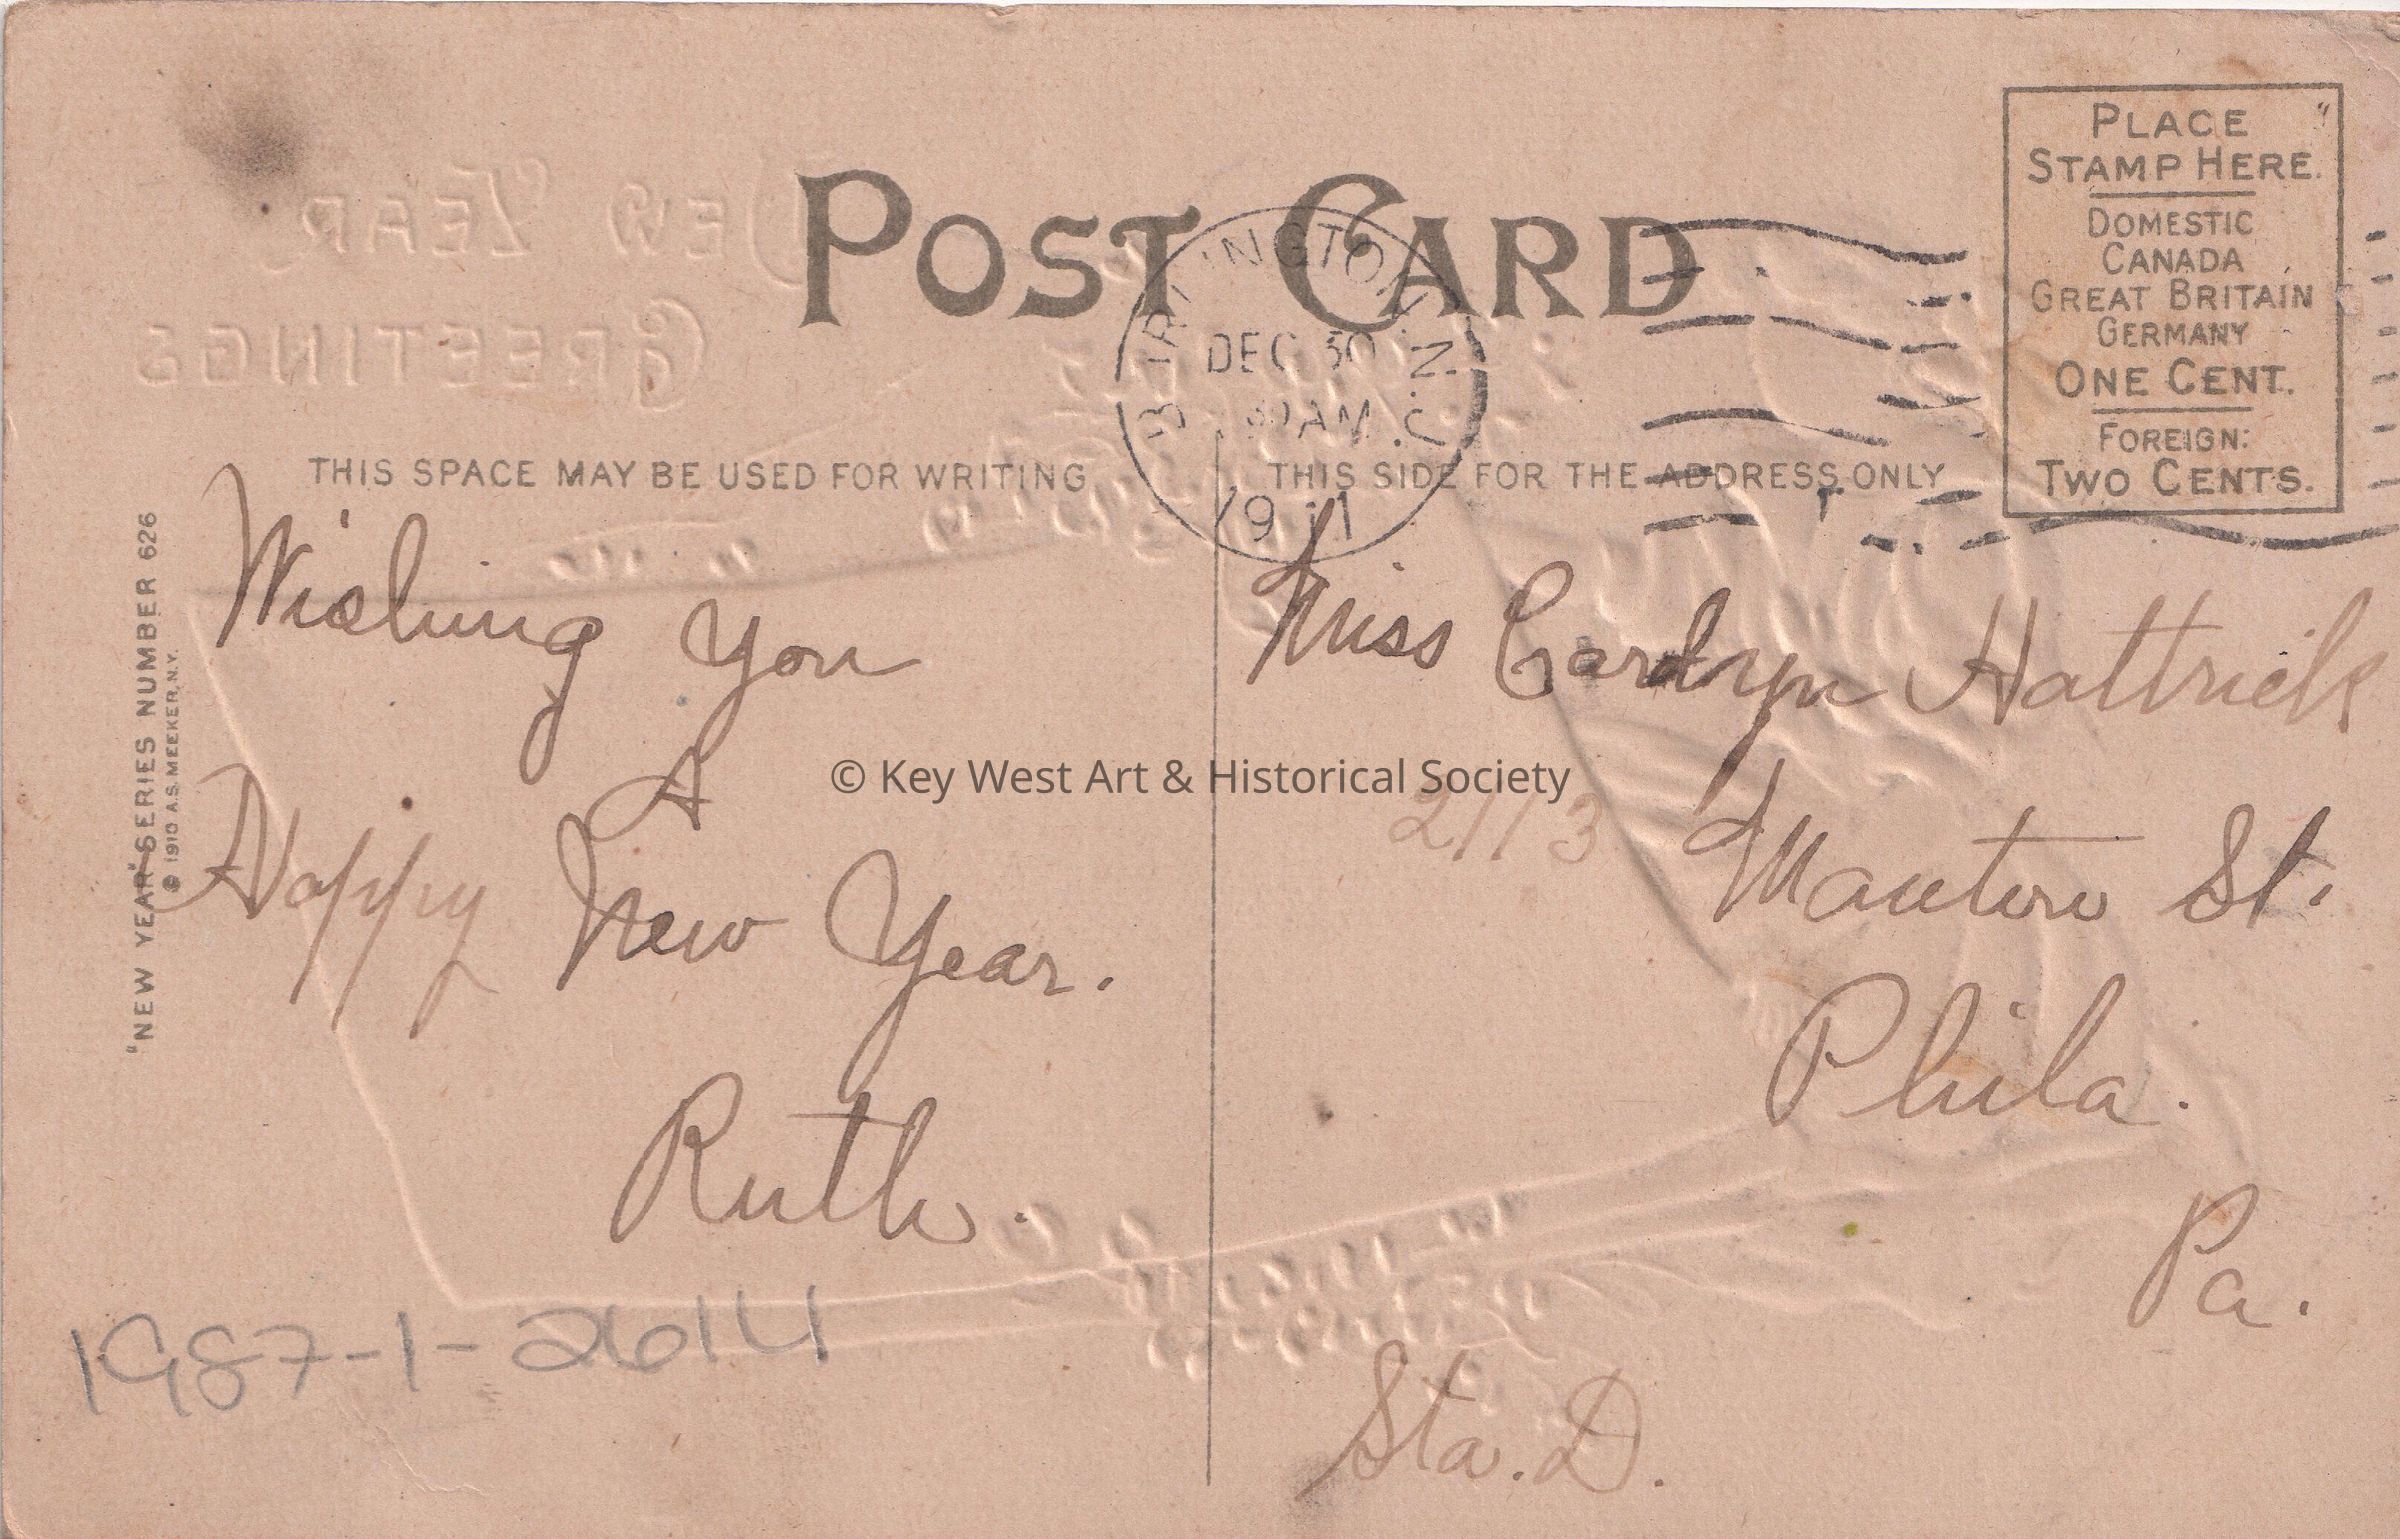 POST CARD
PLACE
STAMP HERE.
DOMESTIC
CANADA
GREAT BRITAIN
GERMANY
ONE CENT.
FOREIGN:
TWO CENTS.
BURLINGTON, N.J.
DEC 30
30 AM
1911
THIS SPACE MAY BE USED FOR WRITING
THIS SIDE FOR THE ADDRESS ONLY
"NEW YEAR" SERIES NUMBER 626
© 1910 A.S. MEEKER, N.Y.
NEW YEAR
GREETINGS
Wishing you
A
Happy New Year.
Ruth.
Miss Carolyn Hattrick
2113 Manton St.
Phila.
Pa.
Sta. D.
1987-1-2614
© Key West Art & Historical Society